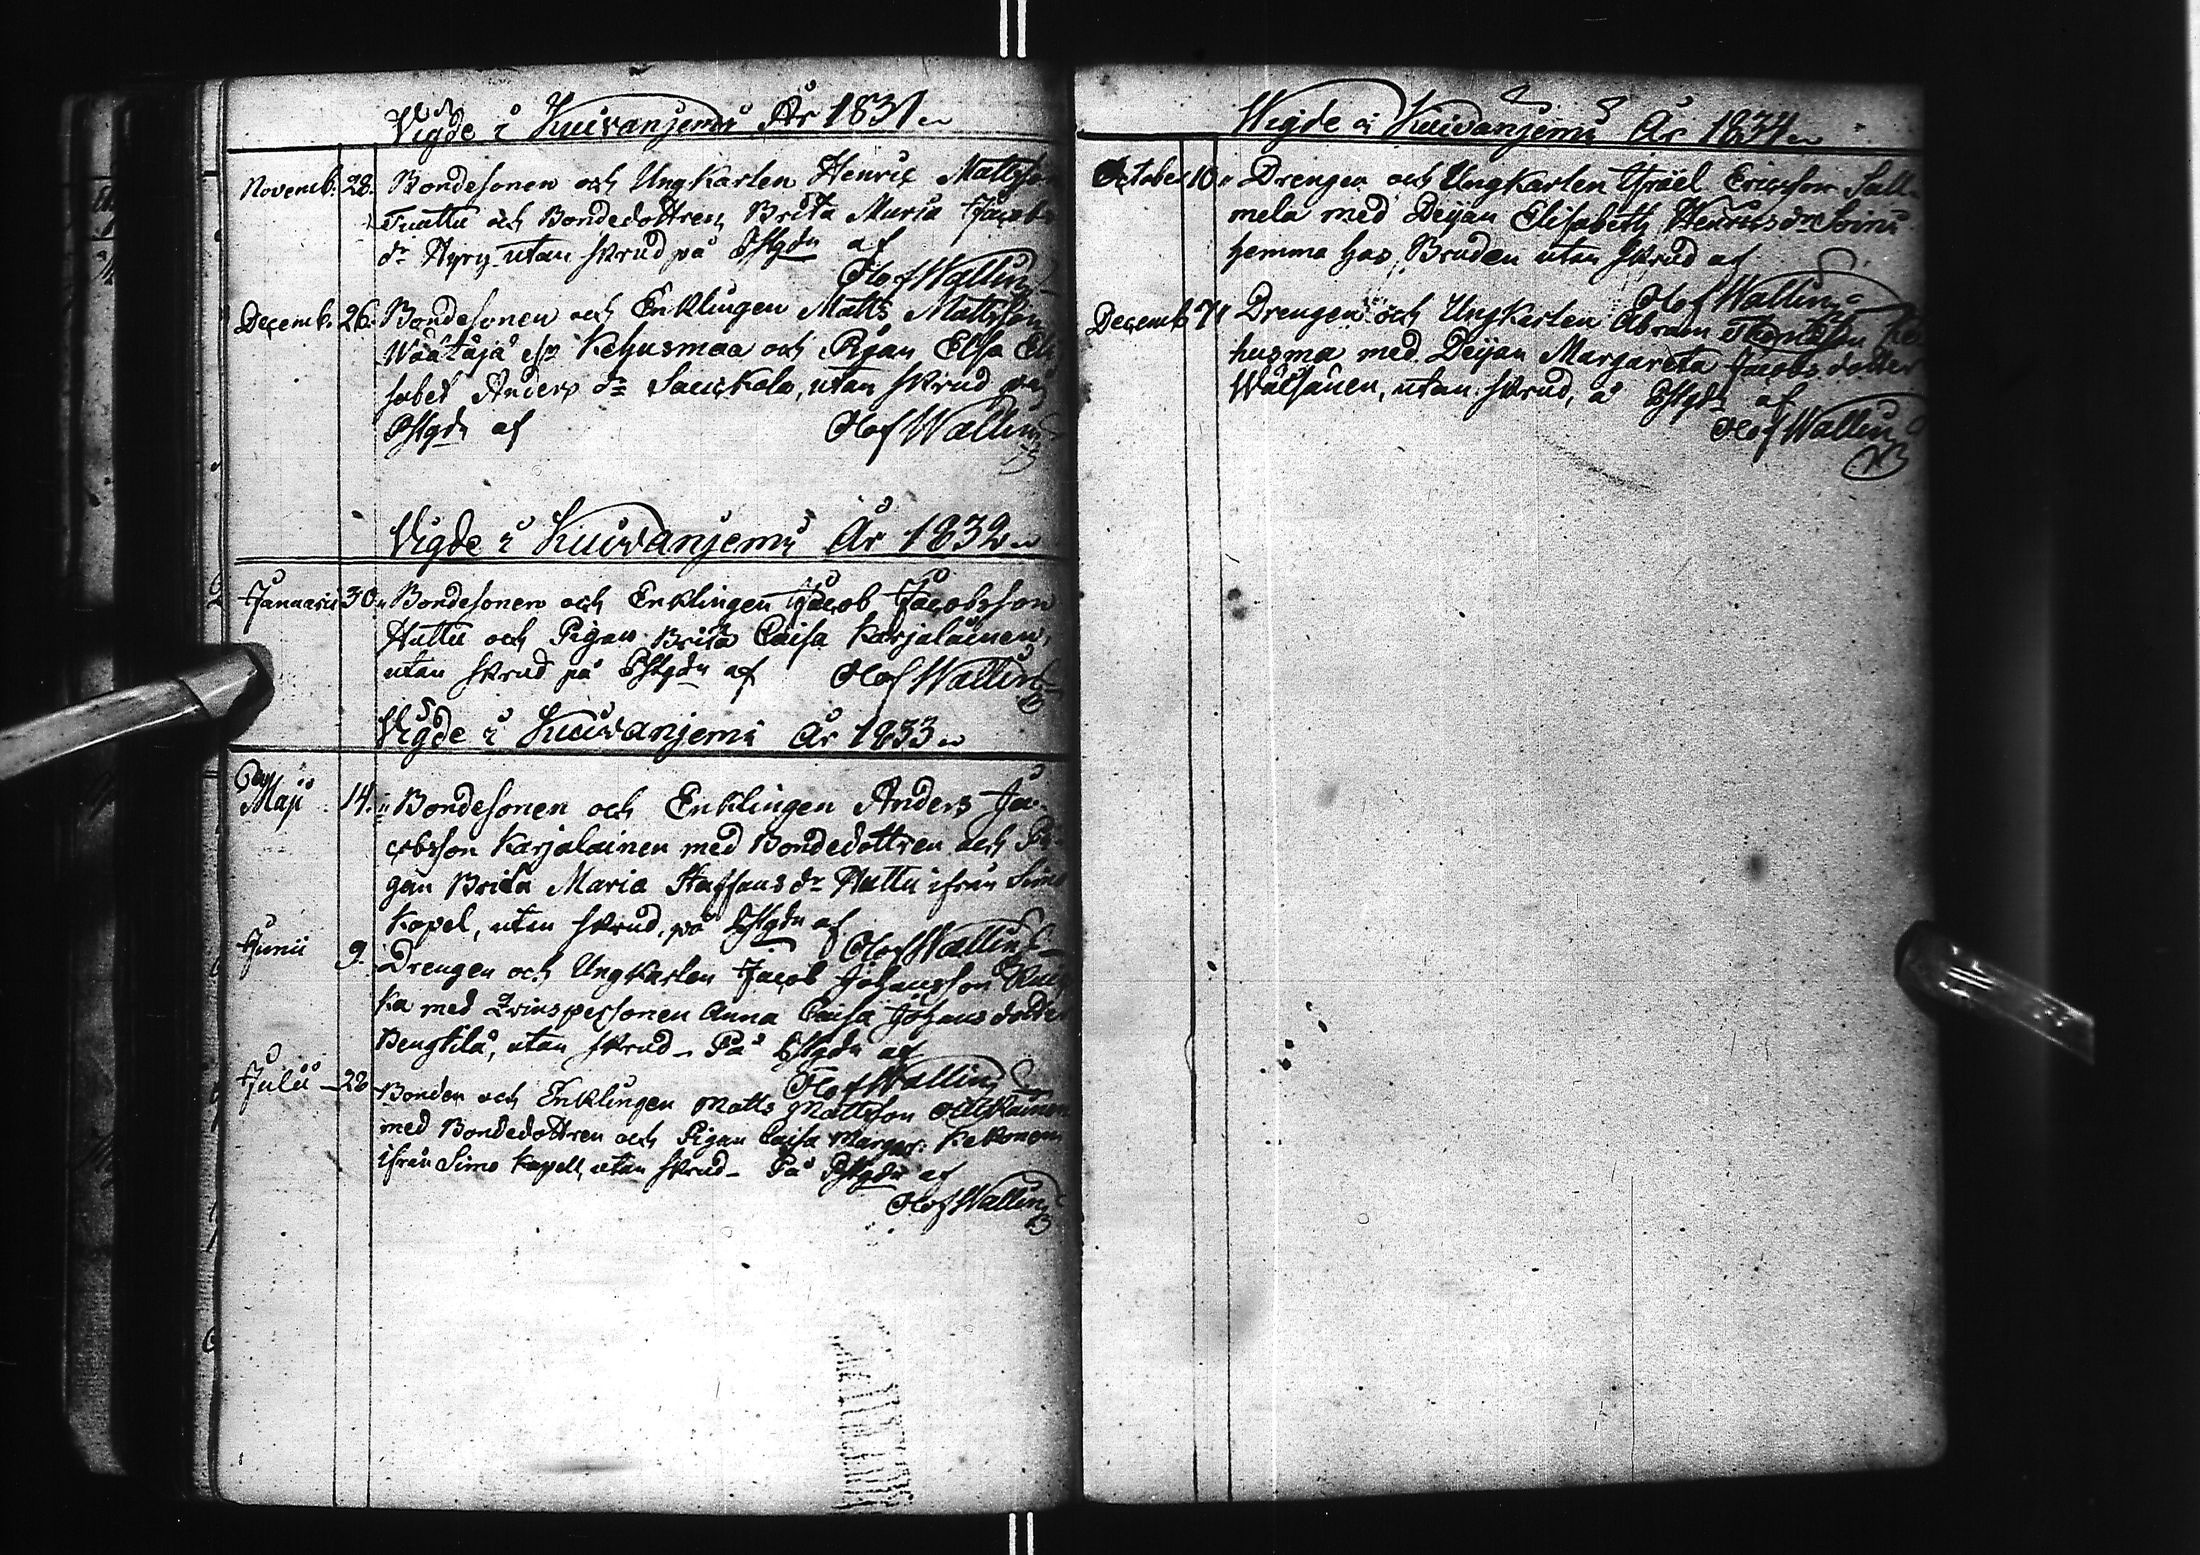 Vigde i Kuivanjemi År 1831
Novemb. 28. Bondesonen och Ungkarlen Henric Mattsson
Tuattu och Bondedottren Brita Maria Jacobs
dr Hyry utan skrud på Pstgdn af
Olof Wallin
Decemb. 26. Bondesonen och Enklingen Matts Mattsson
Wäätäjä Kehusmaa och Pigan Elsa Eli
sabet Anders dr Sauckola, utan skrud på
Pstgdn af Olof Wallin
Vigde i Kuivanjemi År 1832
Januarii 30. Bondesonen och Enklingen Jacob Jacobsson
Huttu och Pigan Brita Caisa Karjalainen,
utan skrud på Pstgdn af Olof Wallin
Vigde i Kuivanjemi År 1833
Maji 14. Bondesonen och Enklingen Anders Ja-
cobsson Karjalainen med Bondedottren och Pi-
gan Brita Maria Staffans dr Huttu ifrån Simo
Kapel, utan skrud, på Pstgdn af
Olof Wallin
Junii 9. Drengen och Ungkarlen Jacob Johansson
ka med Qvinspersonen Anna Caisa Johans dotter
Bengtilä, utan skrud – På Pstgdn af
Olof Wallin
Julii – 28 Bonden och Enklingen Matts Mattsson
med Bondedottren och Pigan Caisa Margar: Kekonen
ifrån Simo Kapell, utan skrud – På Pstgdn af
Olof Wallin
Wigde i Kuivanjemi År 1834
October 10 Drengen och Ungkarlen Isräel Ericsson Sall-
mela med Deijan Elisabeth Henricsdr Soini
hemma hos Bruden utan skrud af
Olof Wallin
Decemb 7 Drengen och Ungkarlen Abram Ke
husma med Deijan Margareta Jacobs dotter
Wälsänen, utan skrud, å Pstgdn af
Olof Wallin